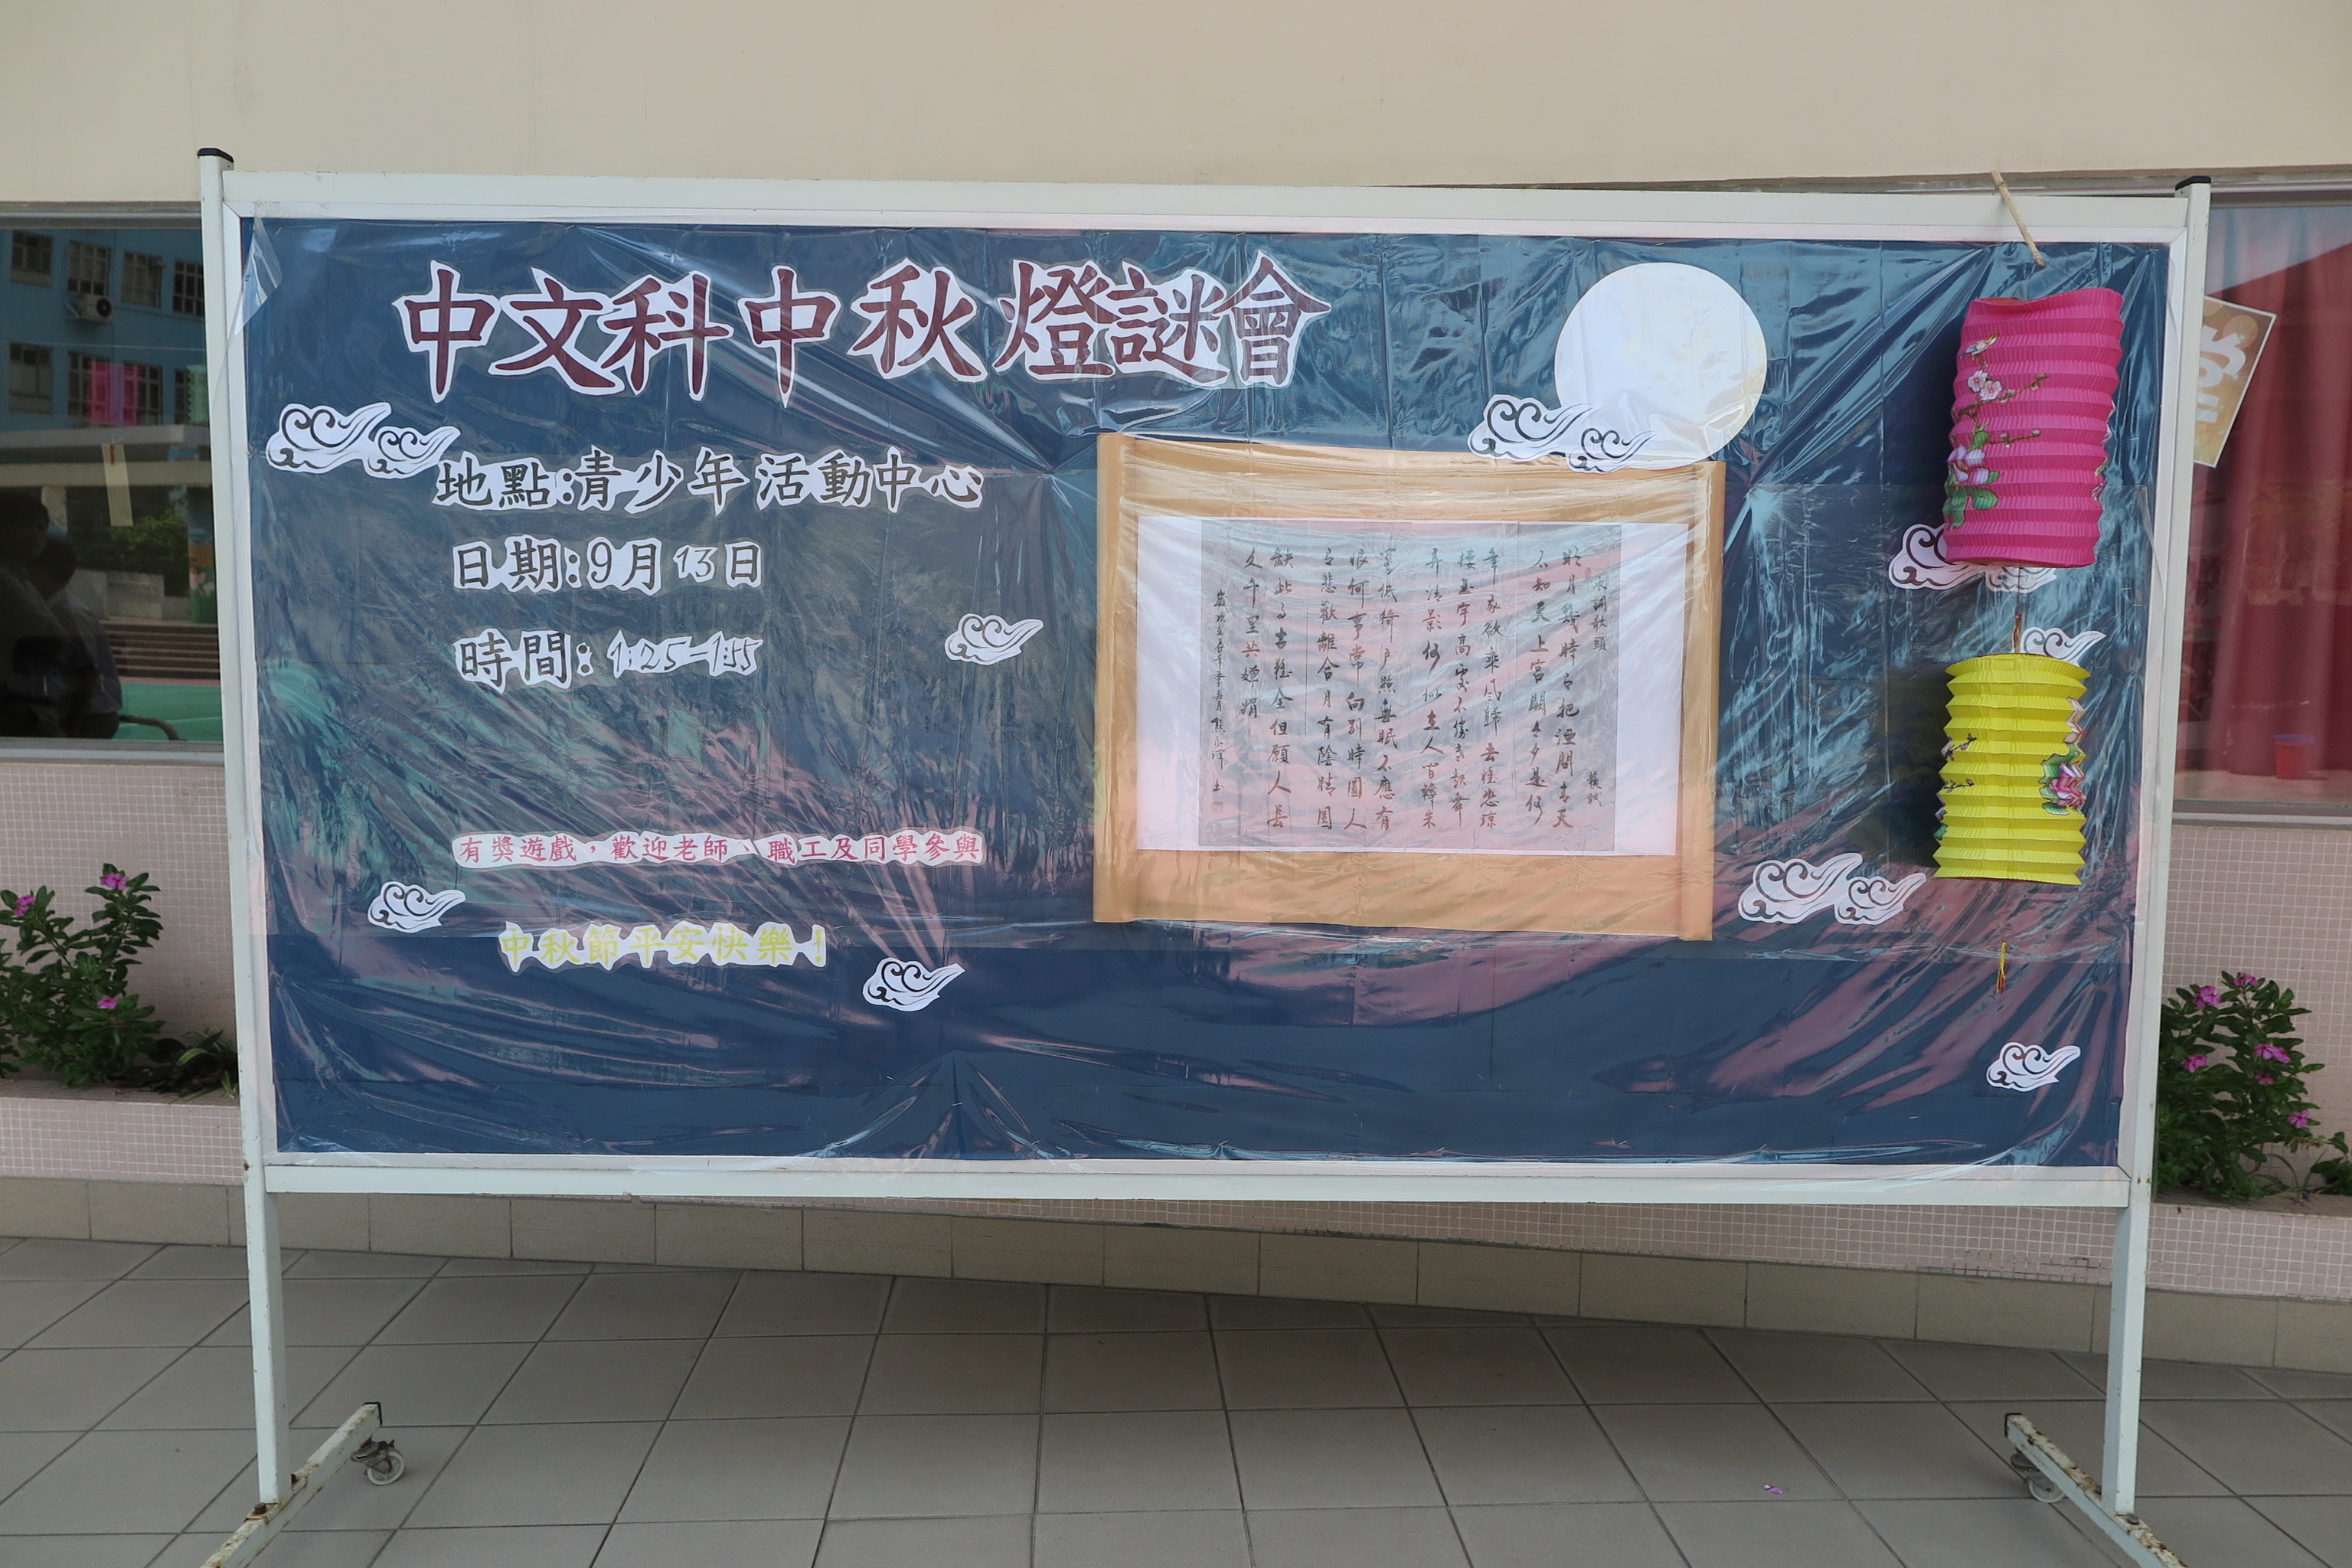 中文科中秋燈謎會
地點:青少年活動中心
日期:9月13日
時間:1:25-1:55
有獎遊戲，歡迎老師、職工及同學參與
中秋節平安快樂！
水調歌頭 蘇軾
明月幾時有把酒問青天
不知天上宮闕今夕是何
年我欲乘風歸去惟恐瓊
樓玉宇高處不勝寒起舞
弄清影何似在人間轉朱
閣低綺戶照無眠不應有
恨何事常向別時圓人
有悲歡離合月有陰晴圓
缺此事古難全但願人長
久千里共嬋娟